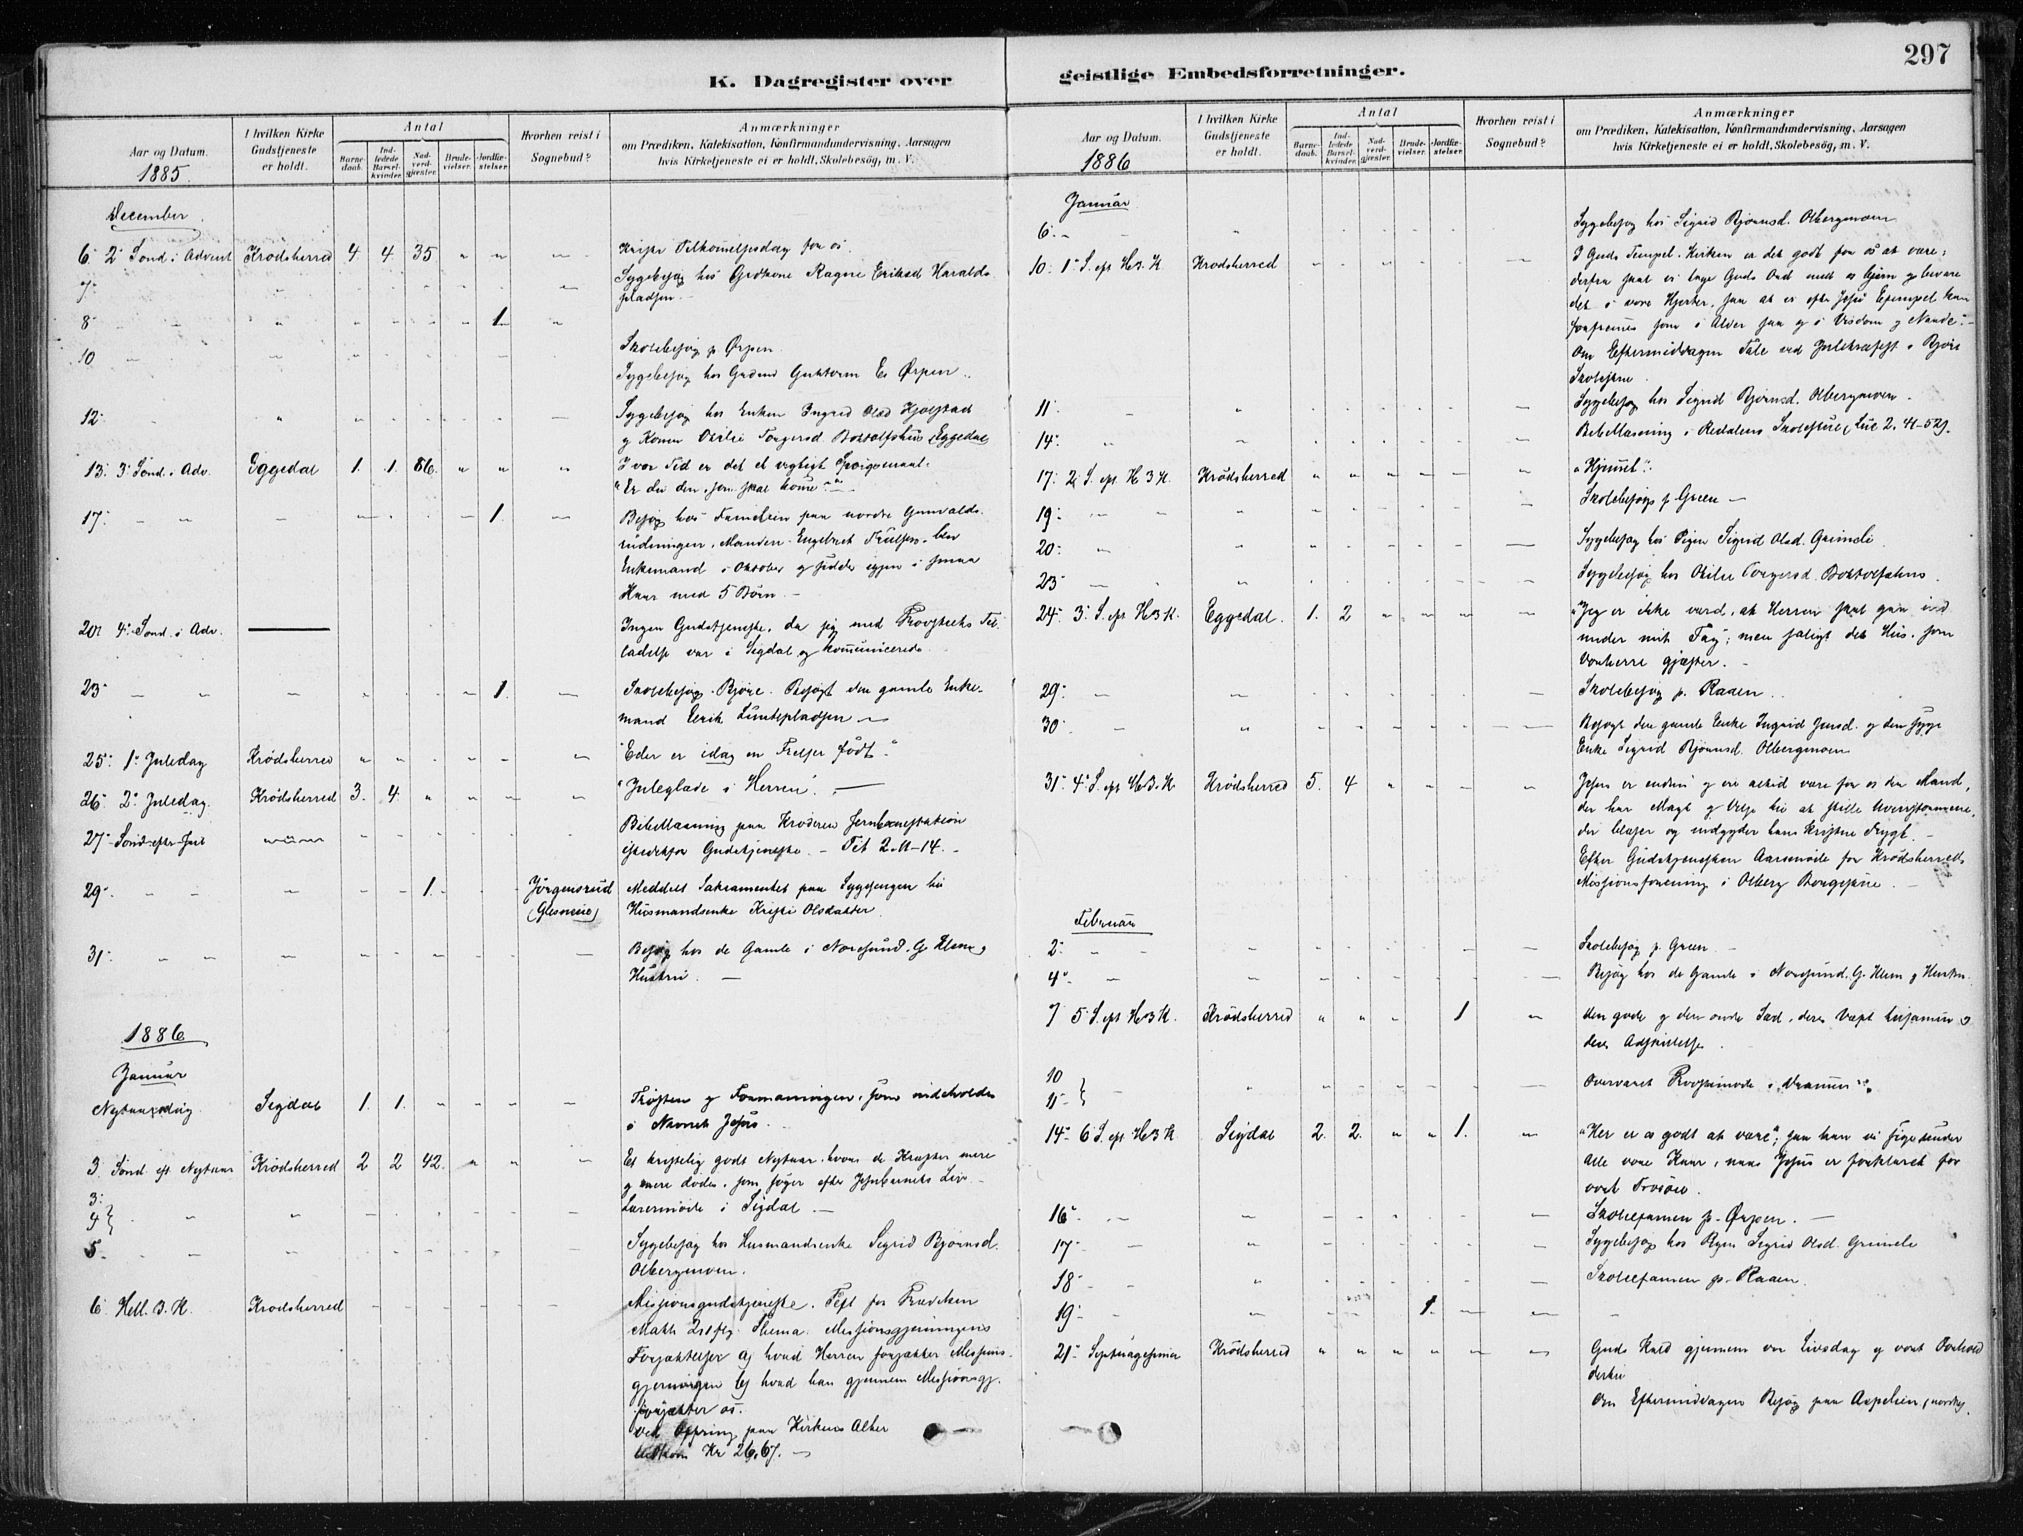 297
K. Dagregister over
Aar og Datum.
1885.
I hvilken Kirke Gudstjeneste er holdt.
Antal
Barnedaab.
Indledede Barselkvinder.
Nadverdgjæster.
Brudevielser.
Jordfæstelser.
Hvorhen reist i Sognebud?
Anmærkninger
om Prædiken, Katekisation, Konfirmandundervisning, Aarsagen
hvis Kirketjeneste ei er holdt, Skolebesøg, m. V.
December
6 2 Sønd. i Advent Krødsherred 4 4 35 Kristi Tilkommelsesdag for os
7 Sygebesøg hos Grdkone Ragne Eriksd Haralds-
pladsen
8 1
10 Skolebesøg p. Ørpen
Sygebesøg hos Gudmd Guttorm E. Ørpen
12 Sygebesøg hos Enken Ingrid Olsd
g Konen Otilie Torgersd Bottolfshus (Eggedal)
13 3 Sønd. i Adv. Eggedal 1. 1. 86 I vor Tid er det et vigtigt Spørgsmaal:
"Er du den, som skal komme"
17 1 Besøg hos Familien paa nordre Gunvalds-
rudningen, Manden Engebret Trulsen blev
Enkemand i Oktober g sidder igjen i smaa
Kaar med 5 Børn
20 4 Sønd. i Adv. Ingen Gudstjeneste, da jeg med Provstiets Til-
ladelse var i Sigdal og kommunicerede
23 1 Skolebesøg Bjøre. Besøgt den gamle Enke-
mand Eerik Lindepladsen
25 1 Juledag Krødsherred "Eder er idag en Frelser født"
26 2 Juledag Krødsherred 3. 4. "Juleglæde i Herren"
27 Sønd. efter Jul Bibellæsning paa Krøderen Jernbanestation
istedetfor Gudstjeneste. Tit 2. 11-14.
29 1. Jørgensrud Meddelt Sakramentet paa Sygesengen til
(Glesneie) Husmandsenke Kristi Olsdatter
31 Besøg hos de Gamle i Noresund. G. Klem g
Hustru
1886
Januar
Nytaarsdag Sigdal 1. 1. Trøsten g Formaningen, som indeholdes
i Navnet Jesus.
3 Sønd. eft. Nytaar Krødsherred 2 2 42 Et kristelig godt Nytaar, hvori de Kræfter mere
g mere dødes, som søger efter Jesubarnets Liv
3
4 Lærermøde i Sigdal
5 Sygebesøg hos Husmandsenke Sigrid Bjørnsd.
Olbergmoen.
6 Hell. 3. K. Krødsherred Missionsgudstjeneste. Text for Prædiken
Math 2. 1 flg. Thema: Missionsgjerningens
Forjættelser a) hvad Herren forjætter Missions-
gjerningen b) hvad han gjennem Missionsgj.
forjætter os.
Ved Ofring paa Kirkens Alter
indkom Kr 26,67.
geistlige Embedsforretninger.
Aar og Datum.
1886
I hvilken Kirke Gudstjeneste er holdt.
Antal
Barnedaab.
Indledede Barselkvinder.
Nadverdgjæster.
Brudevielser.
Jordfæstelser.
Hvorhen reist i Sognebud?
Anmærkninger
om Prædiken, Katekisation, Konfirmandundervisning, Aarsagen
hvis Kirketjeneste ei er holdt, Skolebesøg, m. V.
Januar
6 Sygebesøg hos Sigrid Bjørnsd. Olbergmoen
10 1 S. ept. H3K Krødsherred I Guds Tempel, Kirken er det godt for os at være;
derfra skal vi tage Guds Ord med os hjem g bevare
det i vore Hjerter, saa at vi efter Jesu Exempel kan
forfremmes som i Alder saa g i Visdom g Naade.
Om Eftermiddagen Tale ved Juletræfest i Bjøre
Skolestue
11 Sygebesøg hos Sigrid Bjørnsd. Olbergmoen
14 Bibellæsning i Redalens Skolestue (Luc 2. 41-52).
17 2 S. ept. H3K. Krødsherred "Hjemmet".
19 Skolebesøg p. Green
20 Sygebesøg hos Pigen Sigrid Olsd. Grimeli
23 Sygebesøg hos Otilie Torgersd. Bottolfshus
24 3 S. ept H3K. Eggedal. 1. 2 "Jeg er ikke værd, at Herren skal gaa ind
under mit Tag"; men saligt det Hus, som
Vorherre gjæster.
29 Skolebesøg p. Raaen
30 Besøgt den gamle Enke Ingrid Jensd. g den syge
Enke Sigrid Bjørnsd. Olbergmoen
31 4 S. ept H3K Krødsherred 5. 4 Jesus er endnu g vil altid være for os den Mand,
der har Magt g Vilje til at stille Uveirsstormene,
der blæser og indgyder hans Kristne Frygt.
Efter Gudstjenesten Aarsmøde for Krødsherreds
Missionsforening i Olberg Borgestue
Februar
2 Skolebesøg p. Green
4 Besøg hos de Gamle i Noresund. G. Klem g Hustru
7 5 S. ept H3K. Krødsherred 1 Den gode g den onde Sæd, deres Væxt tilsammen g
deres Adskillelse
10
11 Overværet Provstimøde i Drammen
14 6 S. ept H3K Sigdal 2. 2. 1. "Her er os godt at være", saa kan vi sige under
alle vore Kaar, naar Jesus er forklaret for
vort Troesøie.
16 Skoleexamen p. Ørpen.
17 Sygebesøg hos Pigen Sigrid Olsd. Grimeli
18 Skoleexamen p. Raaen
19 1.
21 Septuagesima Krødsherred Guds Kald gjennem vor Livsdag g vort Forhold
dertil
Om Eftermiddagen Besøg paa Aspelien (nordre).